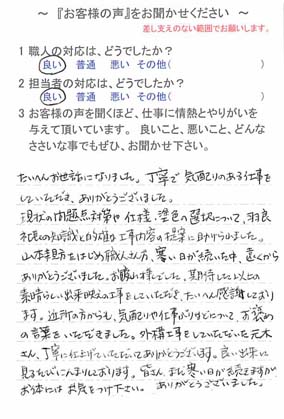 ～『お客様の声』をお聞かせください～
差し支えのない範囲でお願いします。
1 職人の対応は、どうでしたか?
良い 普通 悪い その他( )
2 担当者の対応は、どうでしたか?
良い 普通 悪い その他( )
3 お客様の声を聞くほど、仕事に情熱とやりがいを
与えて頂いています。 良いこと、悪いこと、どんな
ささいな事でもぜひ、お聞かせ下さい。
たいへんお世話になりました。丁寧で気配りのある仕事を
していただき、ありがとうございました。
現状の問題点、対策や仕様、塗色の選択について、
社長の知識と的確な工事内容の提案に助けられました。
山本親方をはじめ職人さん方、寒い日が続いた中、遠くから
ありがとうございました。お疲れ様でした。期待した以上の
素晴らしい出来映えの工事をしていただき、たいへん感謝しており
ます。近所の方からも、気配りや仕事ぶりなどについて、お褒め
の言葉をいただきました。外構工事をしていただいた元木
さん、丁寧に仕上げていただいてありがとうございます。良い出来に
見るたびにんまりしております。皆さん、まだ寒い日が続きますが
お体にはお気をつけ下さい。 ありがとうございました。